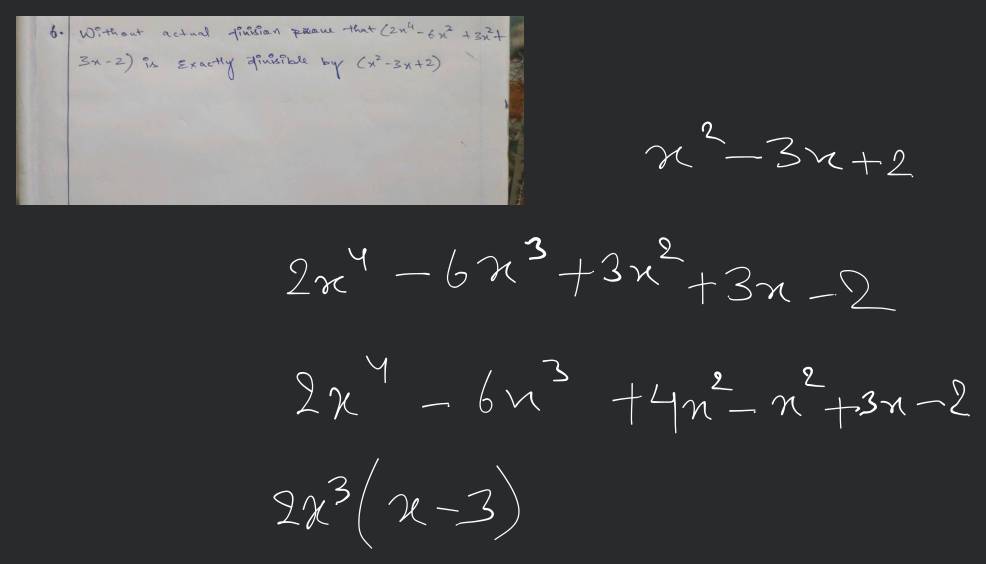 6. Without actual division prove that (2x⁴ - 6x² + 3x² +
3x - 2) is Exactly divisible by (x² - 3x + 2)
x² - 3x + 2
2x⁴ - 6x³ + 3x² + 3x - 2
2x⁴ - 6x³ + 4x² - x² + 3x - 2
2x³(x - 3)